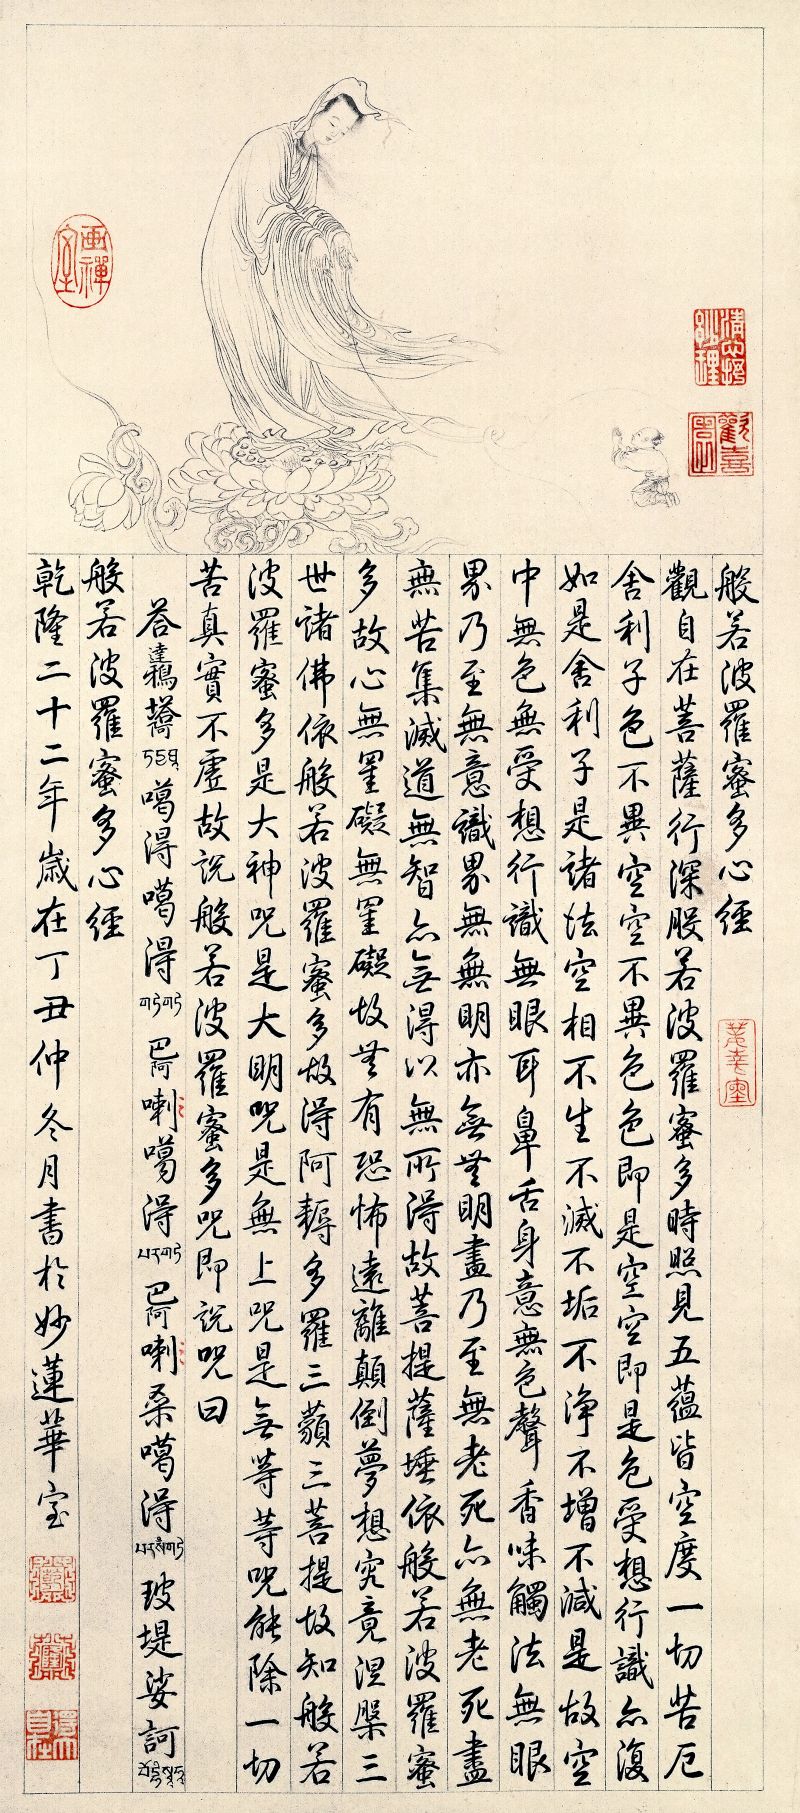 畫禪室
清心抒妙理
般若波羅蜜多心經
觀自在菩薩行深般若波羅蜜多時照見五蘊皆空度一切苦厄
舍利子色不異空空不異色色即是空空即是色受想行識亦復
如是舍利子是諸法空相不生不滅不垢不淨不增不減是故空
中無色無受想行識無眼耳鼻舌身意無色聲香味觸法無眼
界乃至無意識界無無明亦無無明盡乃至無老死亦無老死盡
無苦集滅道無智亦無得以無所得故菩提薩埵依般若波羅蜜
多故心無罣礙無罣礙故無有恐怖遠離顛倒夢想究竟涅槃三
世諸佛依般若波羅蜜多故得阿耨多羅三藐三菩提故知般若
波羅蜜多是大神咒是大明咒是無上咒是無等等咒能除一切
苦真實不虛故說般若波羅蜜多咒即說咒曰
答達鴉塔噶得噶得巴阿喇噶得巴阿喇桑噶得玻堤娑訶
般若波羅蜜多心經
乾隆二十二年歲在丁丑仲冬月書於妙蓮華室
得大自在